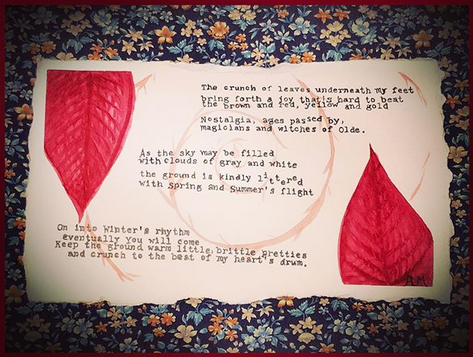 The crunch of leaves underneath my feet
bring forth a joy that's hard to beat
the brown and red, yellow and gold
Nostalgia, ages passed by,
magicians and witches of Olde.
As the sky may be filled
with clouds of gray and white
the ground is kindly littered
with Spring and Summer's flight
On into Winter's rhythm
eventually you will come
Keep the ground warm little brittle pretties
and crunch to the beat of my heart's drum.